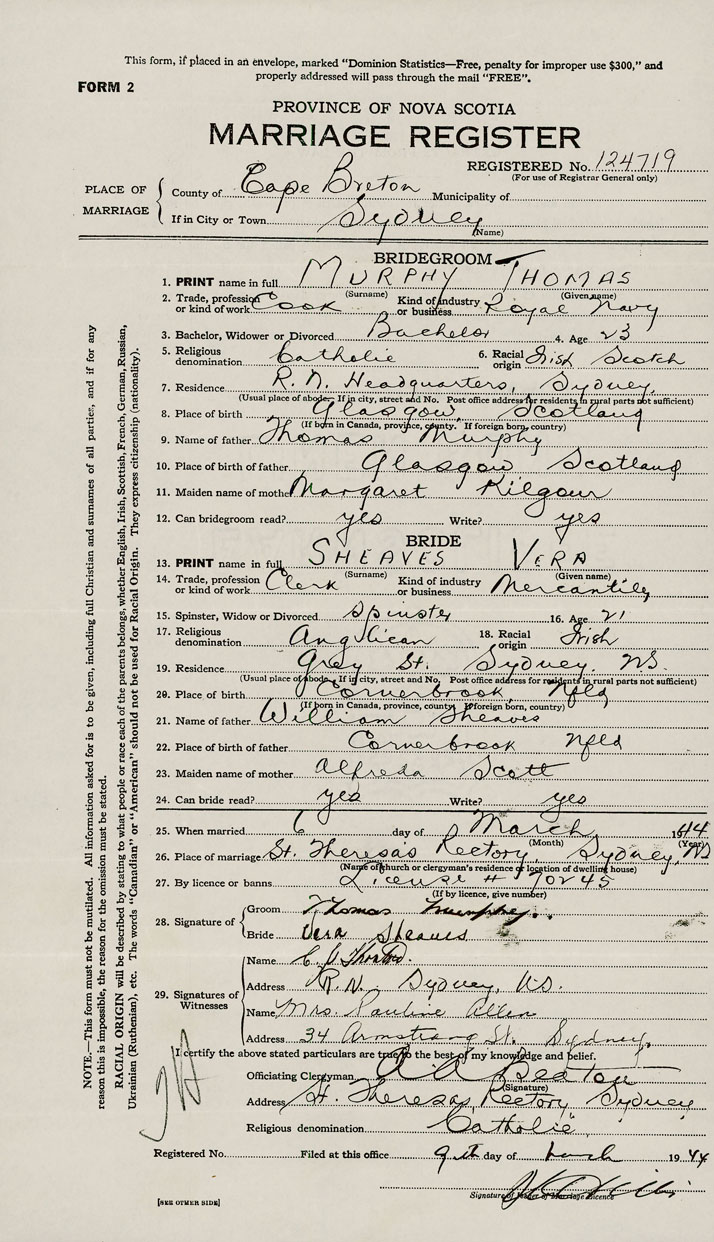 This form, if placed in an envelope, marked "Dominion Statistics—Free, penalty for improper use $300," and
properly addressed will pass through the mail "FREE".
FORM 2
PROVINCE OF NOVA SCOTIA
MARRIAGE REGISTER
REGISTERED No. 124719
(For use of Registrar General only)
PLACE OF MARRIAGE
County of Cape Breton Municipality of
If in City or Town Sydney
(Name)
BRIDEGROOM
1. PRINT name in full MURPHY THOMAS
(Surname) (Given name)
2. Trade, profession or kind of work Cook Kind of industry or business Royal Navy
3. Bachelor, Widower or Divorced Bachelor 4. Age 23
5. Religious denomination Catholic 6. Racial origin Irish Scotch
7. Residence R. N. Headquarters, Sydney
(Usual place of abode. If in city, street and No. Post office address for residents in rural parts not sufficient)
8. Place of birth Glasgow Scotland
(If born in Canada, province, county. If foreign born, country)
9. Name of father Thomas Murphy
10. Place of birth of father Glasgow Scotland
11. Maiden name of mother Margaret Kilgour
12. Can bridegroom read? yes Write? yes
BRIDE
13. PRINT name in full SHEAVES VERA
(Surname) (Given name)
14. Trade, profession or kind of work Clerk Kind of industry or business Mercantile
15. Spinster, Widow or Divorced Spinster 16. Age 21
17. Religious denomination Anglican 18. Racial origin Irish
19. Residence Grey St. Sydney. NS.
(Usual place of abode. If in city, street and No. Post office address for residents in rural parts not sufficient)
20. Place of birth Cornerbrook, Nfld
(If born in Canada, province, county. If foreign born, country)
21. Name of father William Sheaves
22. Place of birth of father Cornerbrook Nfld
23. Maiden name of mother Alfreda Scott
24. Can bride read? yes Write? yes
25. When married 6 day of March 1944
(Month) (Year)
26. Place of marriage St. Theresa's Rectory, Sydney, NS
(Name of church or clergyman's residence or location of dwelling house)
27. By licence or banns License # 70245
(If by licence, give number)
28. Signature of
Groom Thomas Murphy.
Bride Vera Sheaves
29. Signatures of Witnesses
Name
Address R.N. Sydney, NS.
Name Mrs. Pauline Allen
Address 34 Armstrong St. Sydney.
I certify the above stated particulars are true to the best of my knowledge and belief.
Officiating Clergyman Beaton
(Signature)
Address St. Theresa's Rectory, Sydney
Religious denomination Catholic
Registered No. Filed at this office 9th day of March 1944
Signature of Issuer of Marriage Licence
[SEE OTHER SIDE]
NOTE.—This form must not be mutilated. All information asked for is to be given, including full Christian and surnames of all parties, and if for any
reason this is impossible, the reason for the omission must be stated.
RACIAL ORIGIN will be described by stating to what people or race each of the parents belongs, whether English, Irish, Scottish, French, German, Russian,
Ukrainian (Ruthenian), etc. The words "Canadian" or "American" should not be used for Racial Origin. They express citizenship (nationality).